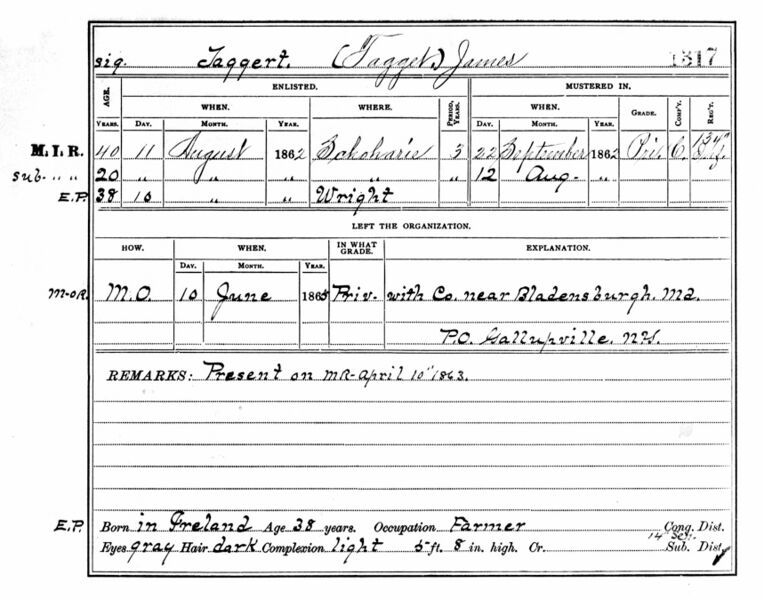 sig. Taggert. (Tagget.) James 1317
AGE. ENLISTED. MUSTERED IN.
WHEN. WHERE. PERIOD, YEARS. WHEN. GRADE. COMP'Y. REG'T.
YEARS. DAY. MONTH. YEAR. DAY. MONTH. YEAR.
M. I. R. 40 11 August 1862 Schoharie 3 22 September 1862 Pri. C. 134"
sub- " " 20 " " " " " 12 Aug- "
E.P. 38 10 " " Wright
LEFT THE ORGANIZATION.
HOW. WHEN. IN WHAT GRADE. EXPLANATION.
DAY. MONTH. YEAR.
M-OR. M.O. 10 June 1865 Priv- with Co. near Bladensburgh. Md.
P.O. Gallupville. N.Y.
REMARKS: Present on MR-April 10" 1863.
E.P. Born in Ireland Age 38 years. Occupation Farmer Cong. Dist.
14" Sen.
Eyes gray Hair dark Complexion light 5 ft. 8 in. high. Cr. Sub. Dist.